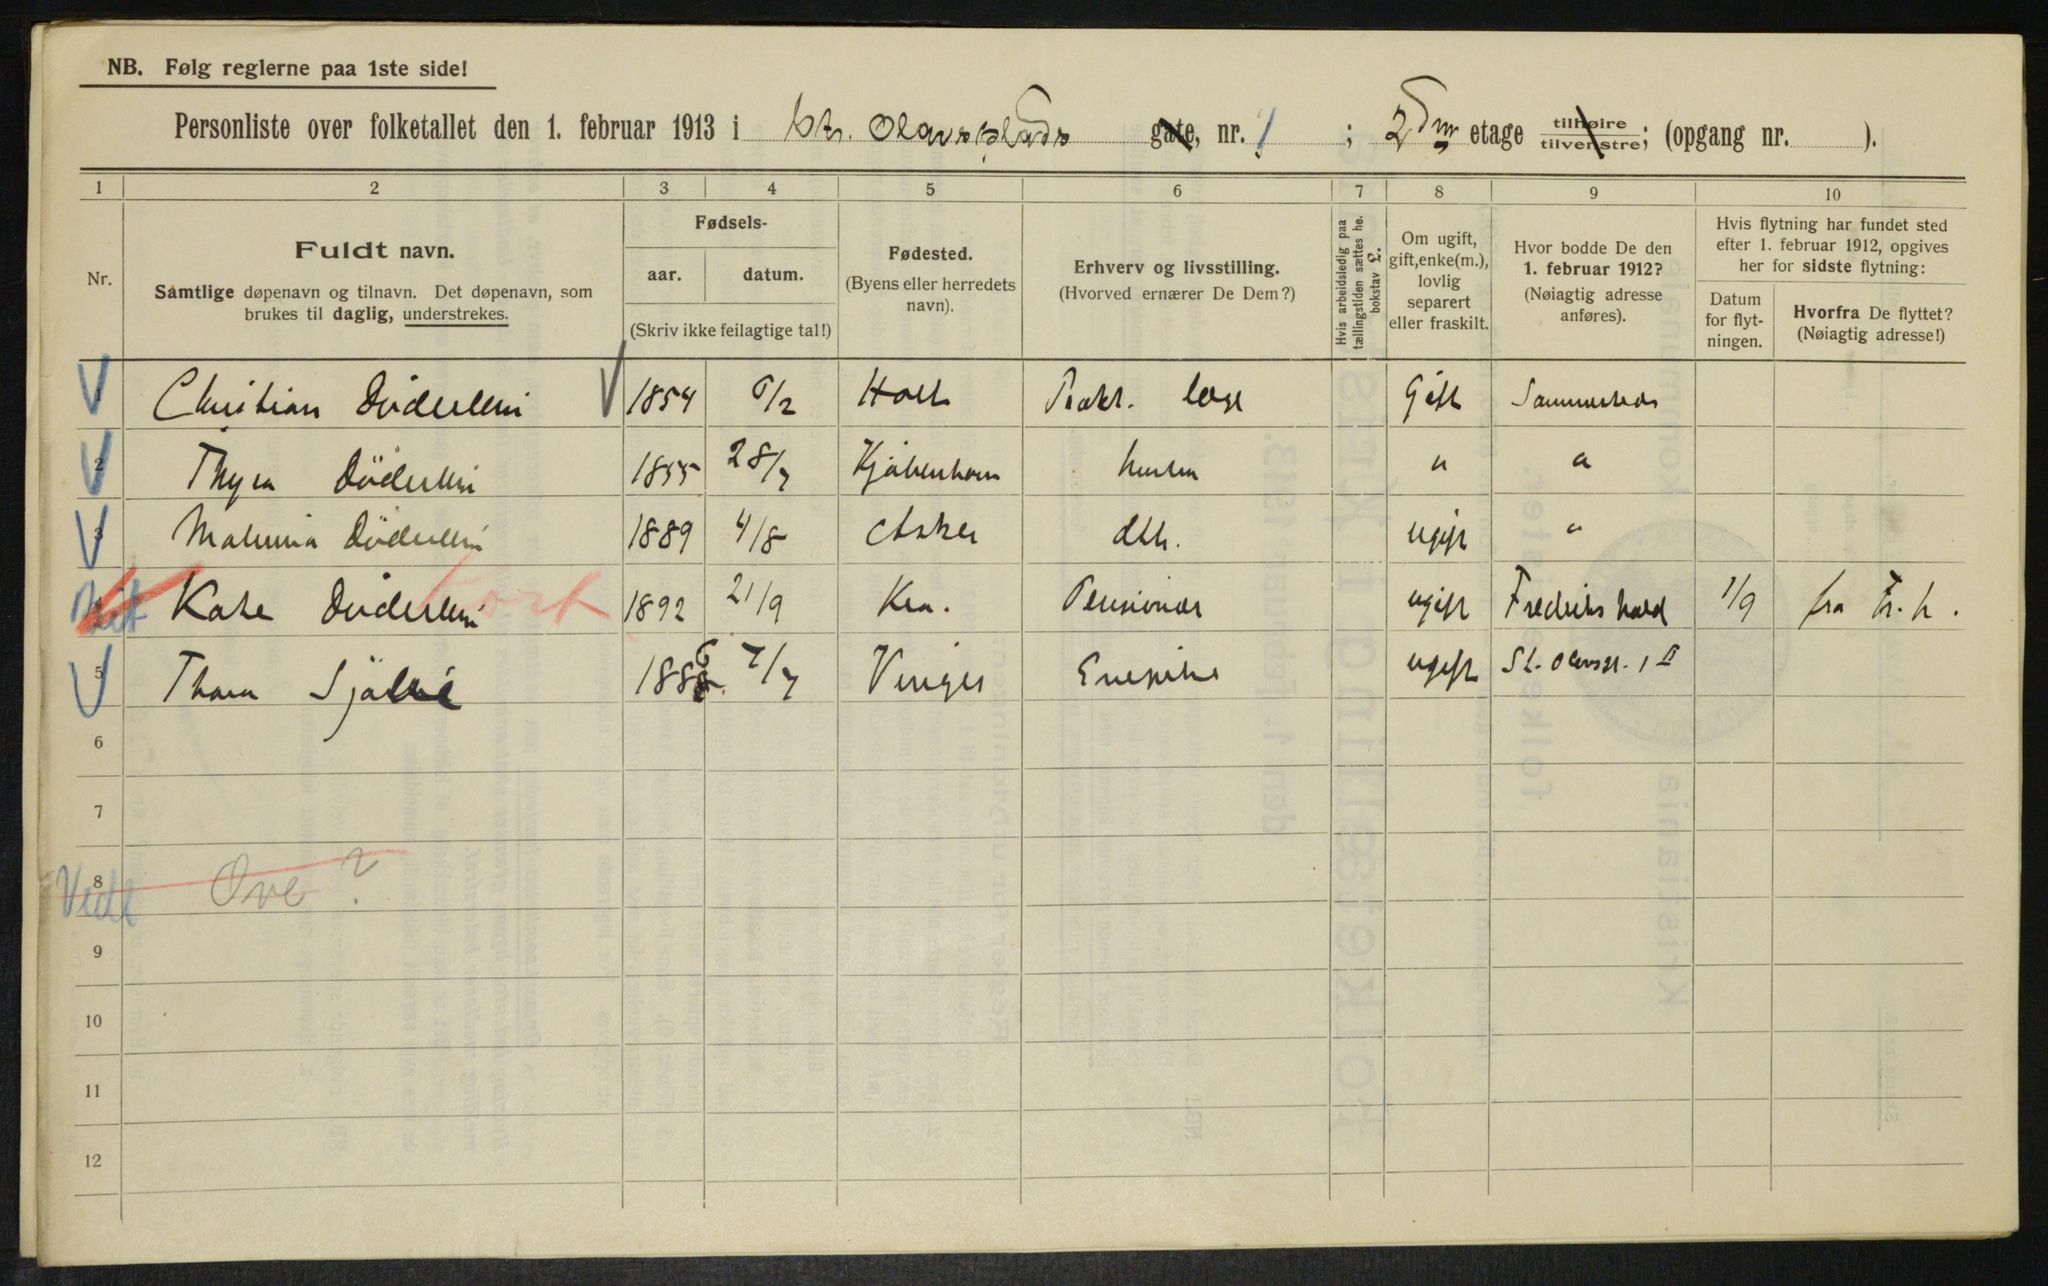 NB. Følg reglerne paa 1ste side!
Personliste over folketallet den 1. februar 1913 i St. Olavsplads gate, nr. 1 ; 2den etage tilhøire tilvenstre; (opgang nr. ).
1 2 3 4 5 6 7 8 9 10
Nr.
Fuldt navn.
Samtlige døpenavn og tilnavn. Det døpenavn, som
brukes til daglig, understrekes.
Fødsels-
aar. datum.
(Skriv ikke feilagtige tal!)
Fødested.
(Byens eller herredets
navn).
Erhverv og livsstilling.
(Hvorved ernærer De Dem?)
Hvis arbeidsledig paa
tællingstiden sættes he.
bokstav L.
Om ugift,
gift, enke(m.),
lovlig
separert
eller fraskilt.
Hvor bodde De den
1. februar 1912?
(Nøiagtig adresse
anføres).
Hvis flytning har fundet sted
efter 1. februar 1912, opgives
her for sidste flytning:
Datum
for flyt-
ningen.
Hvorfra De flyttet?
(Nøiagtig adresse!)
Christian Döderlein 1854 6/2 Holt Prakt. læge Gift Sammesteds
2 Thyra Döderlein 1855 28/7 Kjöbenhavn hustru " "
3 Malvina Döderlein 1889 4/8 Asker dtr. ugift "
Kate Döderlein 1892 21/9 Kra. Pensionær ugift Fredrikshald 1/9 fra Fr. h.
5 Thora Sjölie 1886 7/7 Vinger Enepike ugift St. Olavsgt. 1 II
6
7
8 Ove ?
9
10
11
12